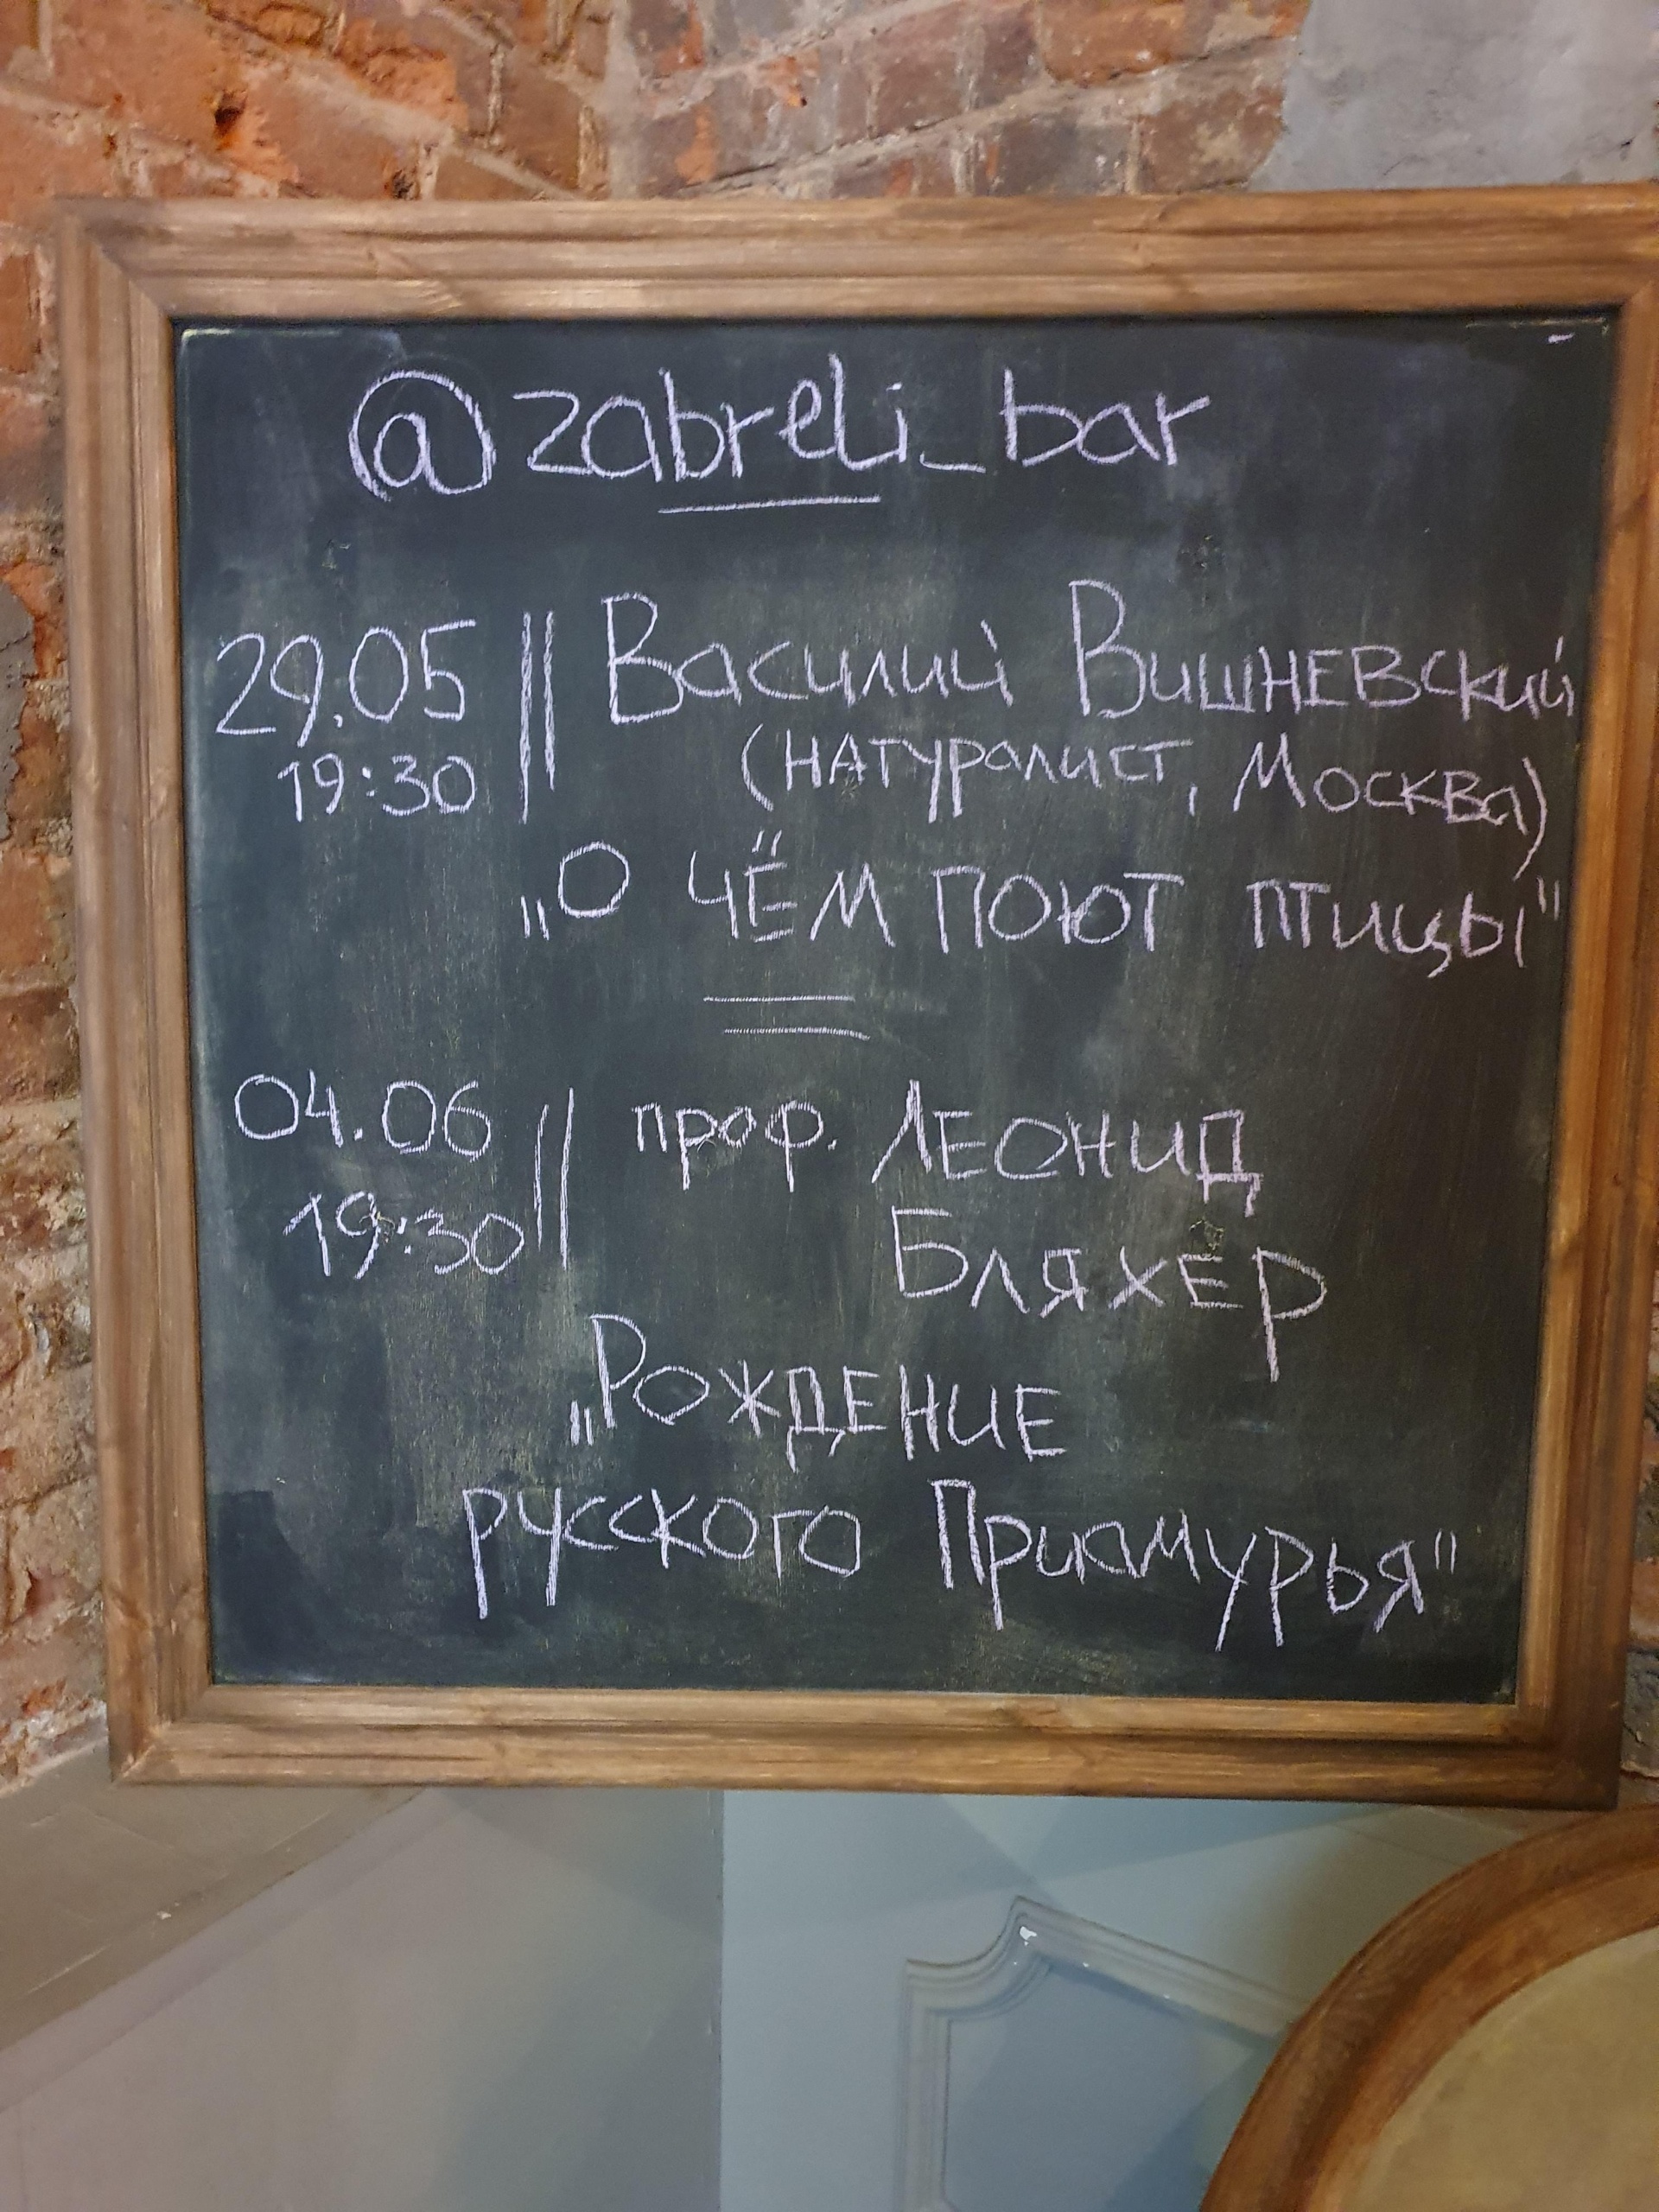 @zabreli_bar
29.05 || Василий Вишневский
19:30 (натуралист, Москва)
„О чём поют птицы"
04.06 || проф. Леонид
19:30 Бляхер
„Рождение
русского Приамурья"